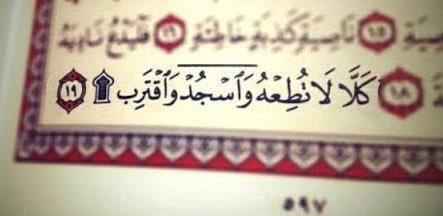 ١٥ نَاصِيَةٍ كَٰذِبَةٍ خَاطِئَةٍ ١٦ فَلْيَدْعُ نَادِيَهُۥ
١٨ كَلَّا لَا تُطِعْهُ وَٱسْجُدْ وَٱقْتَرِب ۩ ١٩
٥٩٧